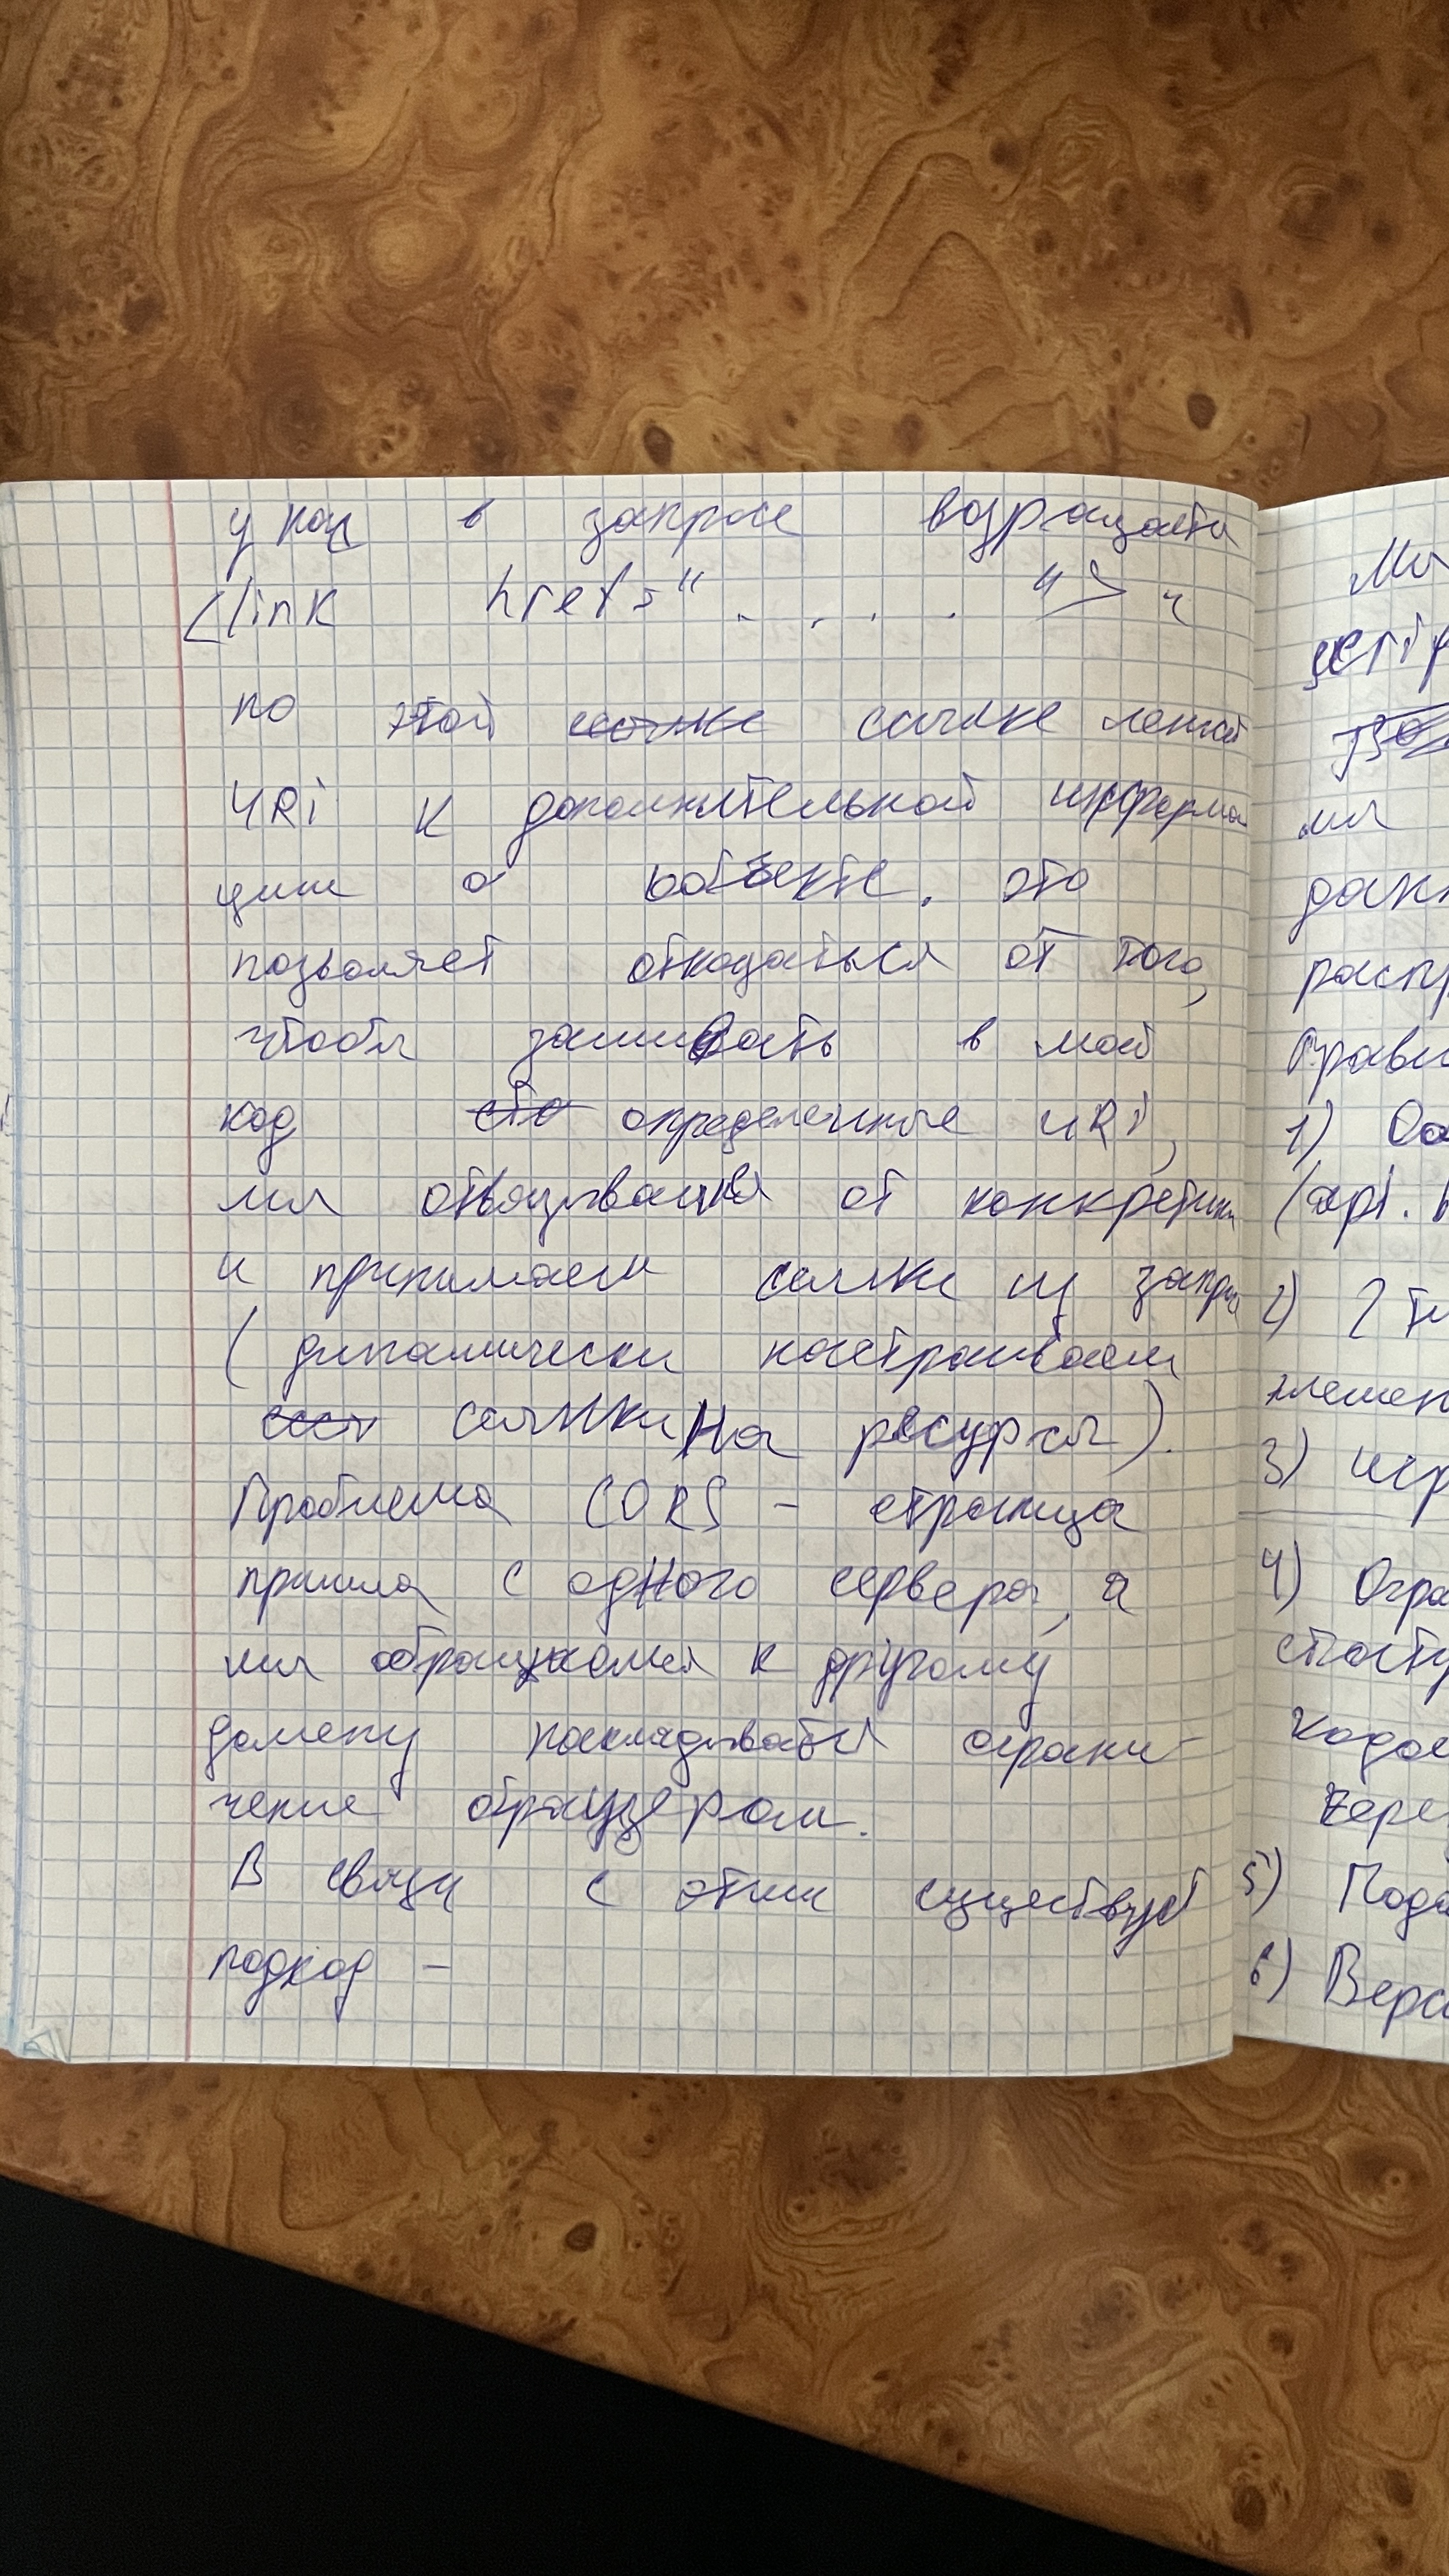 у нас в запросе возращается
<link href="....">и
по этой ссылке лежит
URi к дополнительной информа
ции о обьекте. это
позволяет отказаться от того,
чтобы зашивать в мой
код определенные uRi,
мы отвязываемся от конкретики
и принимаем ссылки из запроса
(динамически настраиваем
ссылки на ресурсы).
Проблема CORS - страница
пришла с одного сервера, а
мы обращаемся к другому
домену накладывается ограни-
чение браузером.
В связи с этим существует
подход -
1)
(api.
2) 2
3)
4)
5)
6)